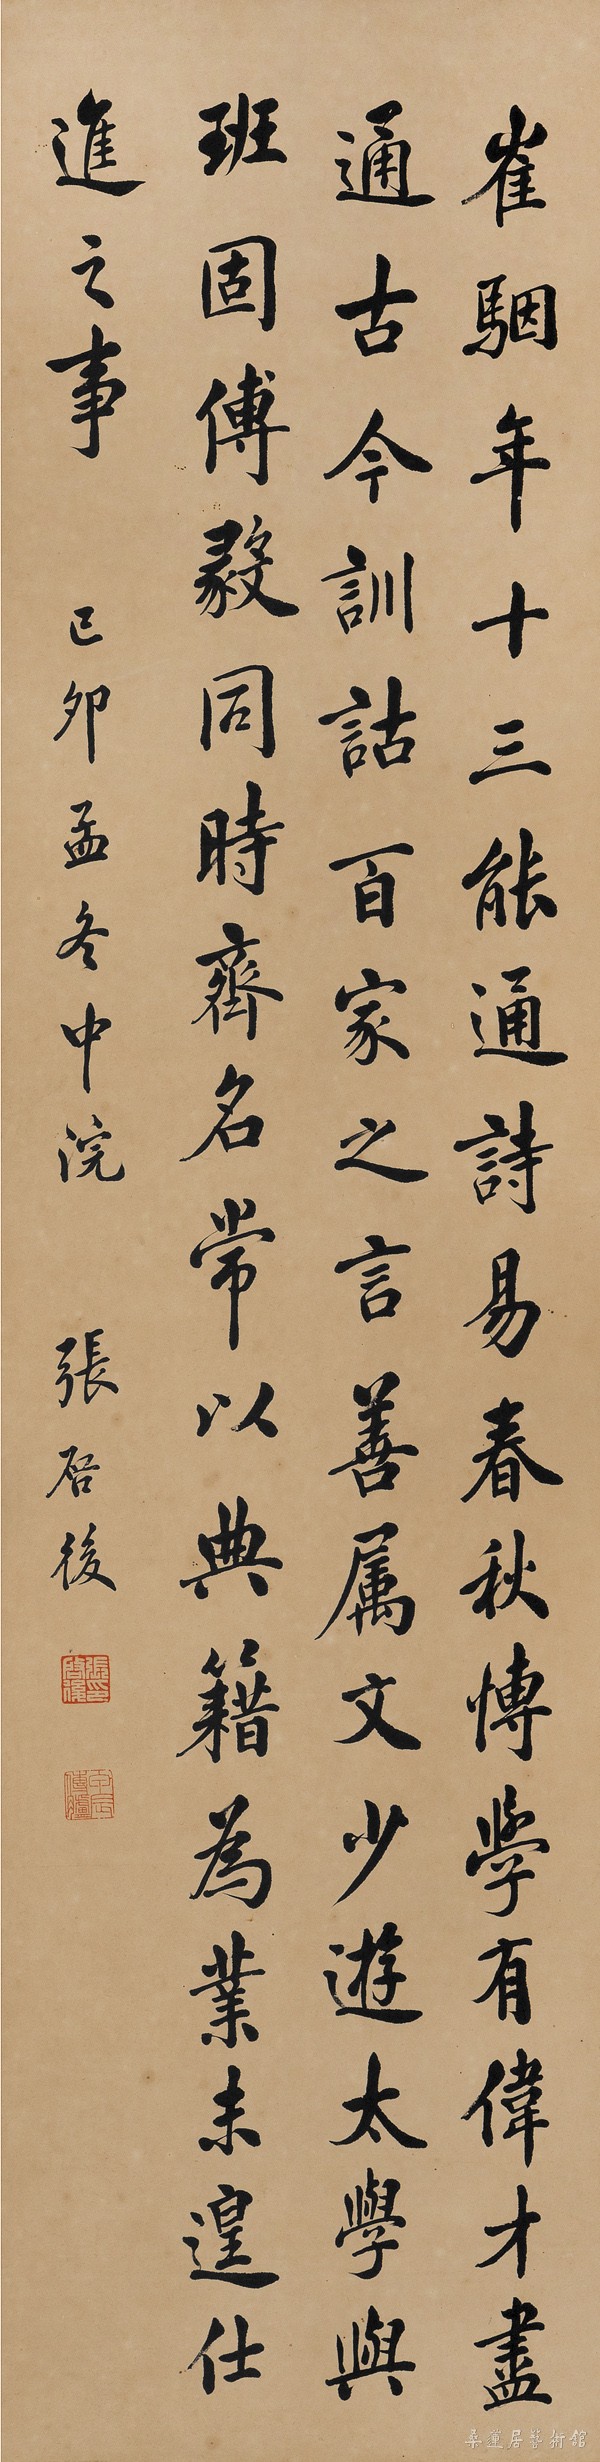 崔駰年十三能通詩易春秋博學有偉才盡
通古今訓詁百家之言善属文少遊太學與
班固傅毅同時齊名常以典籍為業未遑仕
進之事
己卯孟冬中浣
張启後
張啓後印
甲辰傳臚
桑蓮居藝術館